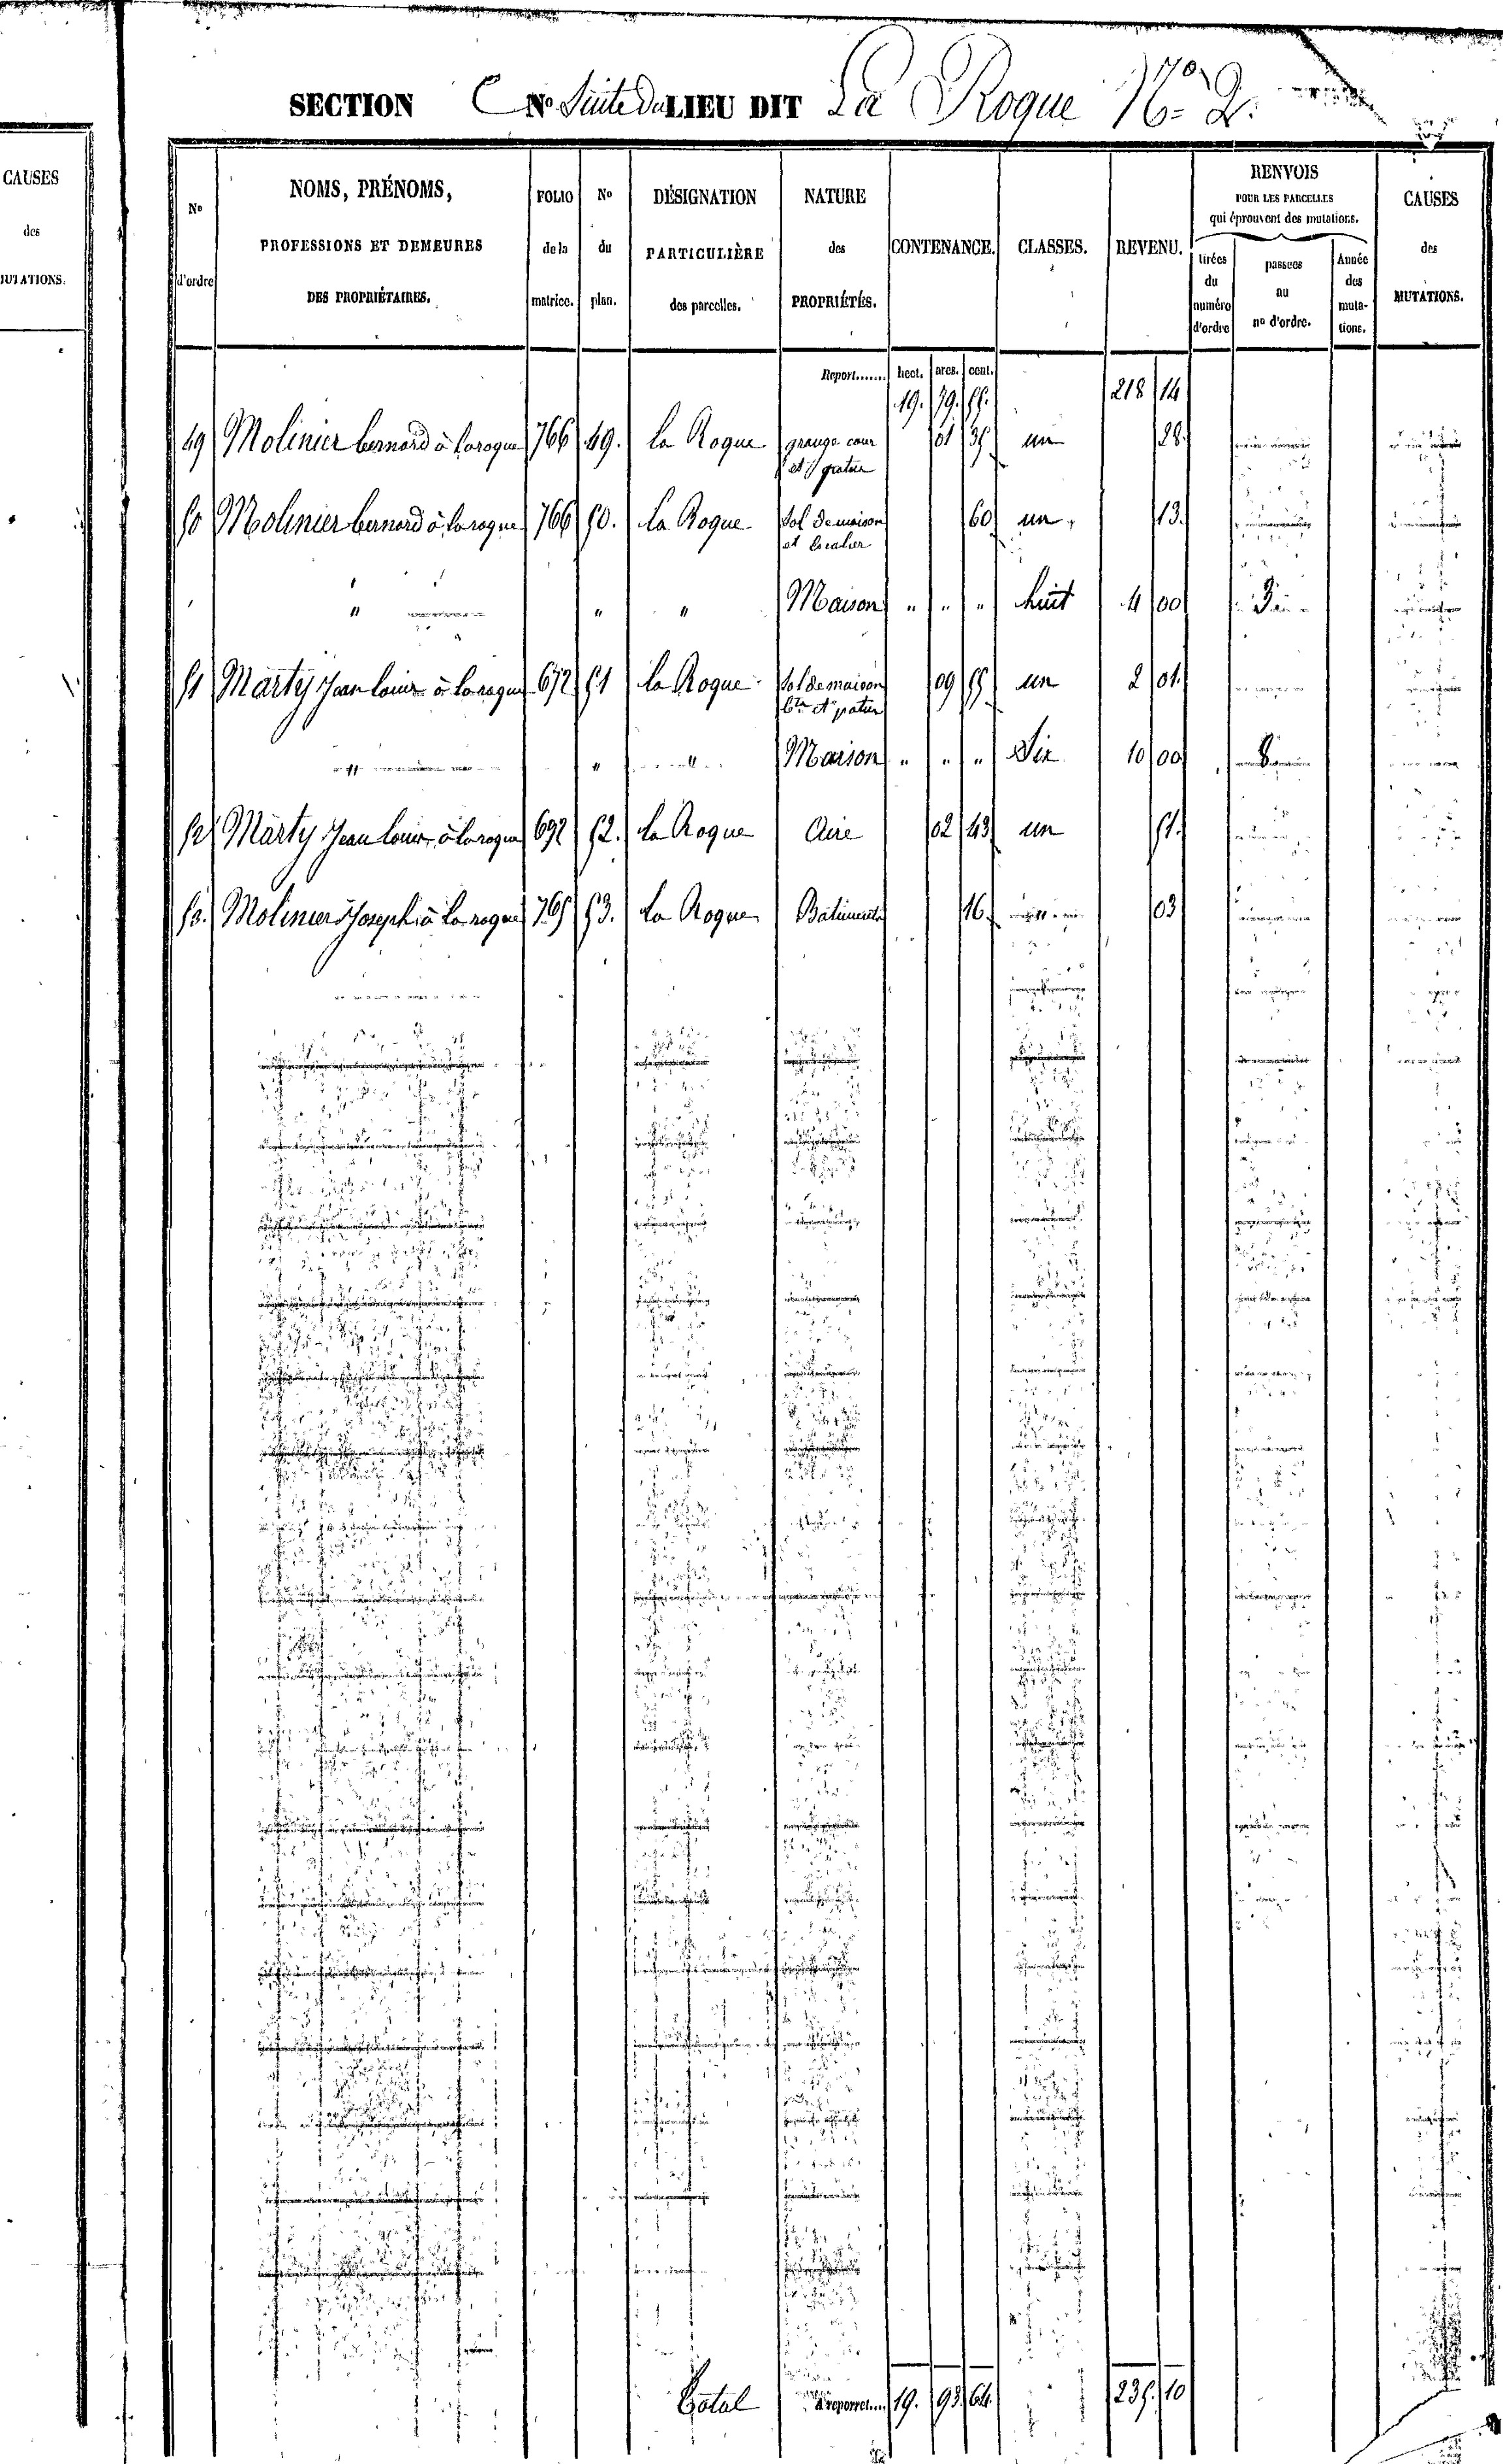 SECTION C No Suite du LIEU DIT La Roque No 2.
CAUSES
des
MUTATIONS.
No
d'ordre
NOMS, PRÉNOMS,
PROFESSIONS ET DEMEURES
DES PROPRIÉTAIRES.
FOLIO
de la
matrice.
No
du
plan.
DÉSIGNATION
PARTICULIÈRE
des parcelles.
NATURE
des
PROPRIÉTÉS.
CONTENANCE.
CLASSES.
REVENU.
RENVOIS
POUR LES PARCELLES
qui éprouvent des mutations.
tirées
du
numéro
d'ordre
passées
au
no d'ordre.
Année
des
muta-
tions.
CAUSES
des
MUTATIONS.
Report....... hect. ares. cent.
19. 79. 55. 218 14
49 Molinier bernard à laroque 766 49. la Roque grange cour 01 35 un 28.
et patus
50 Molinier bernard à laroque 766 50. la Roque Sol de maison 60 un 13.
et Escalier
" " " Maison " " " huit 4 00
51 Marty Jean louis à laroque 692 51 la Roque Sol de maison 09 55. un 2 01.
et patus
" " " Maison " " " Six 10 00
52 Marty Jean louis à laroque 692 52. la Roque Aire 02 43 un 51.
53. Molinier Joseph à la roque 765 53. La Roque Batiments 16. " 03
Total A reporter.... 19. 93 64. 235. 10